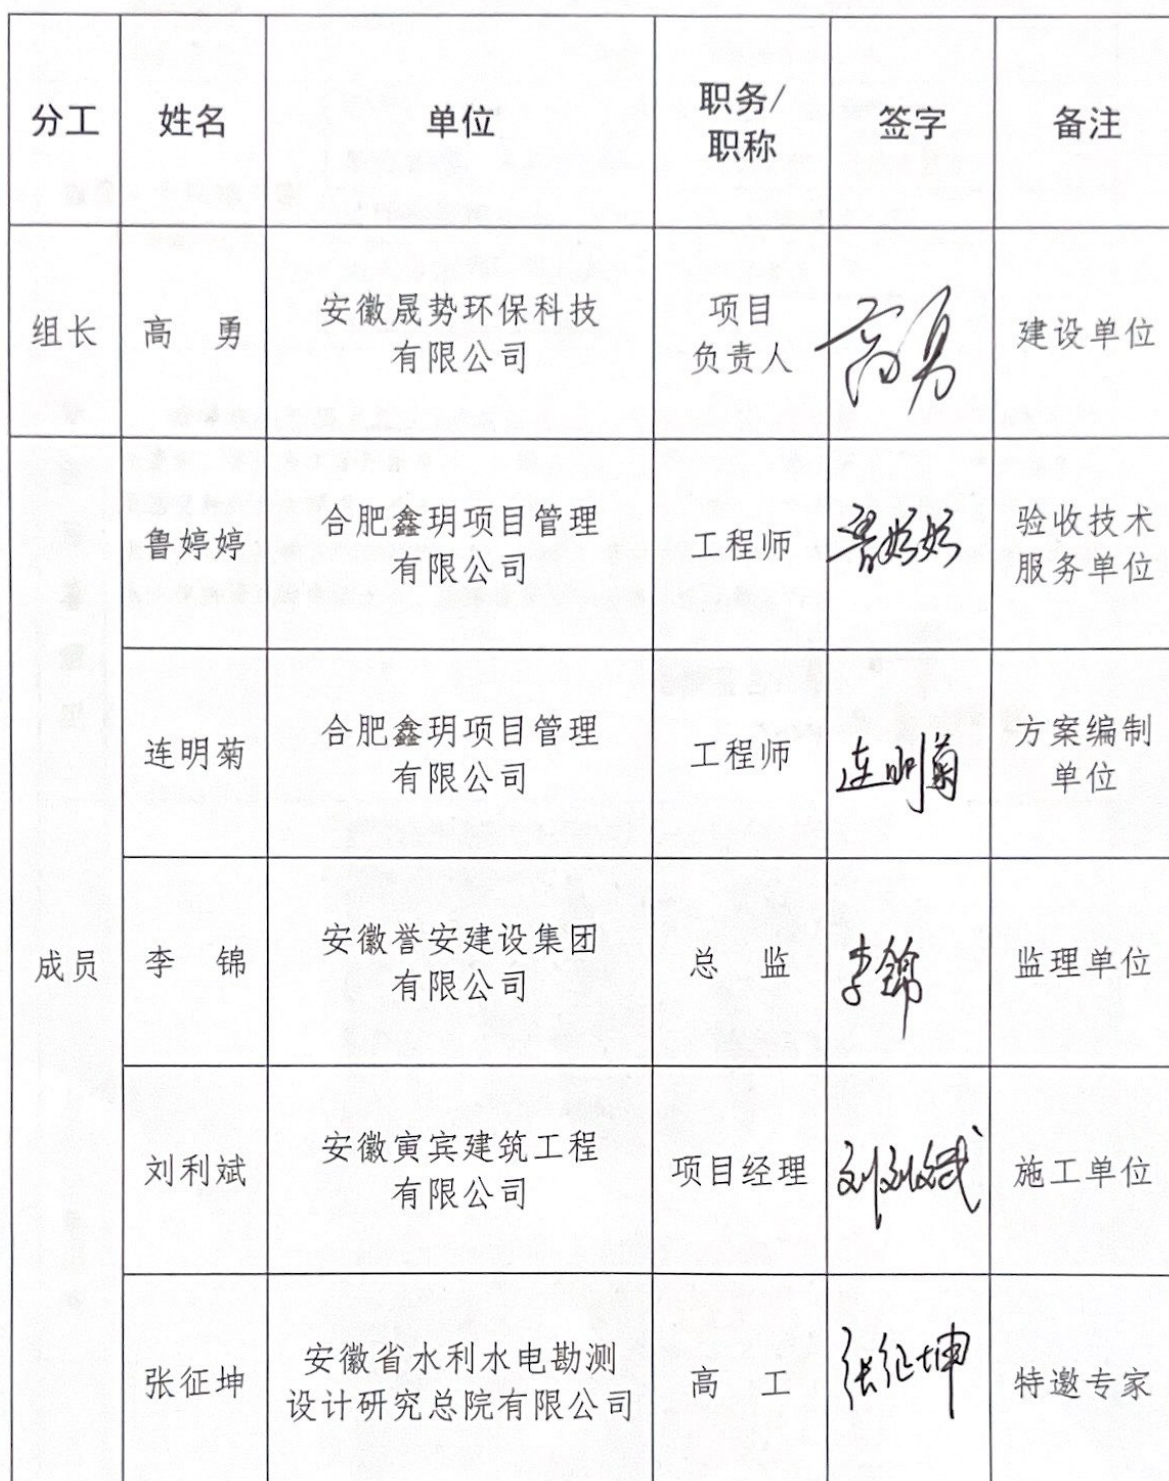 分工 姓名 单位 职务/职称 签字 备注
组长 高 勇 安徽晟势环保科技有限公司 项目负责人 高勇 建设单位
成员
鲁婷婷 合肥鑫玥项目管理有限公司 工程师 鲁婷婷 验收技术服务单位
连明菊 合肥鑫玥项目管理有限公司 工程师 连明菊 方案编制单位
李 锦 安徽誉安建设集团有限公司 总 监 李锦 监理单位
刘利斌 安徽寅宾建筑工程有限公司 项目经理 刘利斌 施工单位
张征坤 安徽省水利水电勘测设计研究总院有限公司 高 工 张征坤 特邀专家